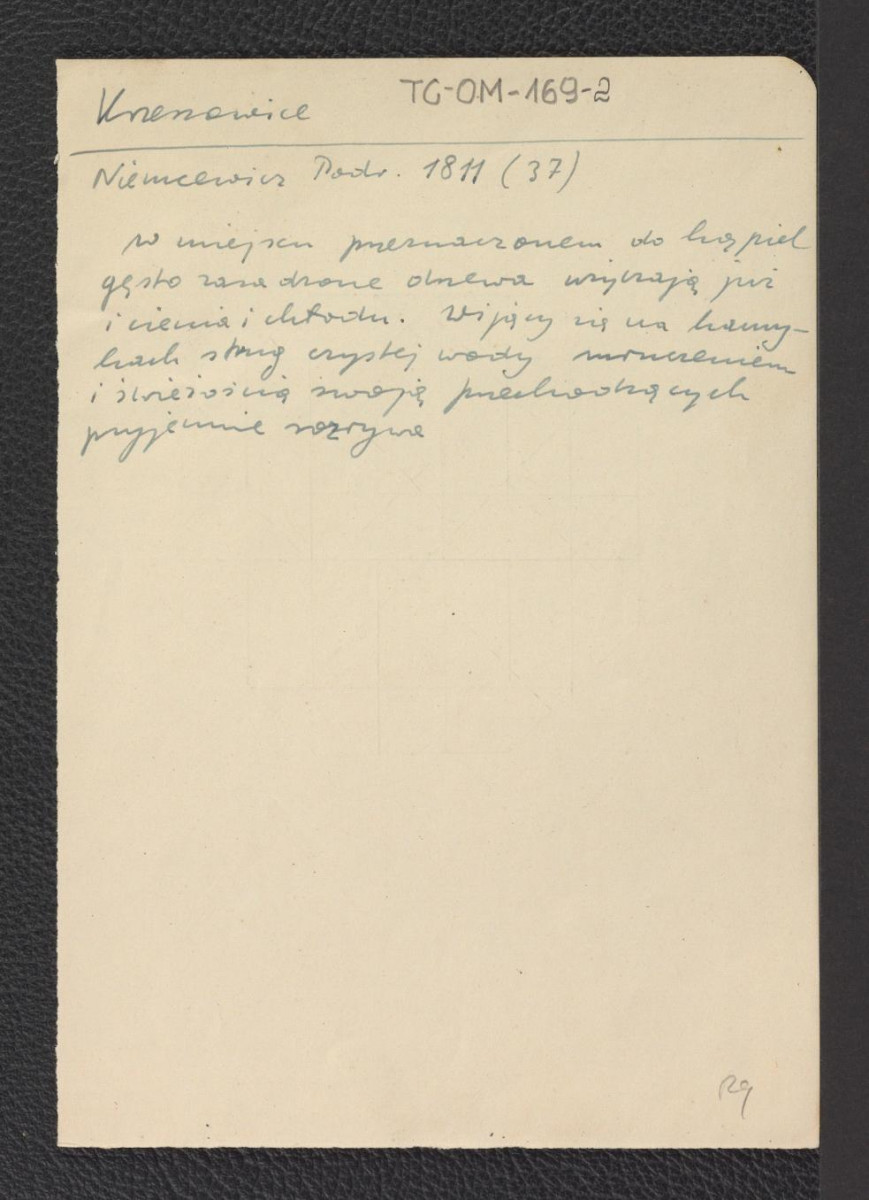 Krzeszowice TG-OM-169-2
Niemcewicz Podr. 1811 (37)
w miejscu przeznaczonem do kąpiel
gęsto zasadzone drzewa użyczają już
i cienia i chłodu. Wijący się na kamy-
kach strug czystej wody mruczeniem
i świeżością swoją przechodzących
przyjemnie rozrywa
Rg